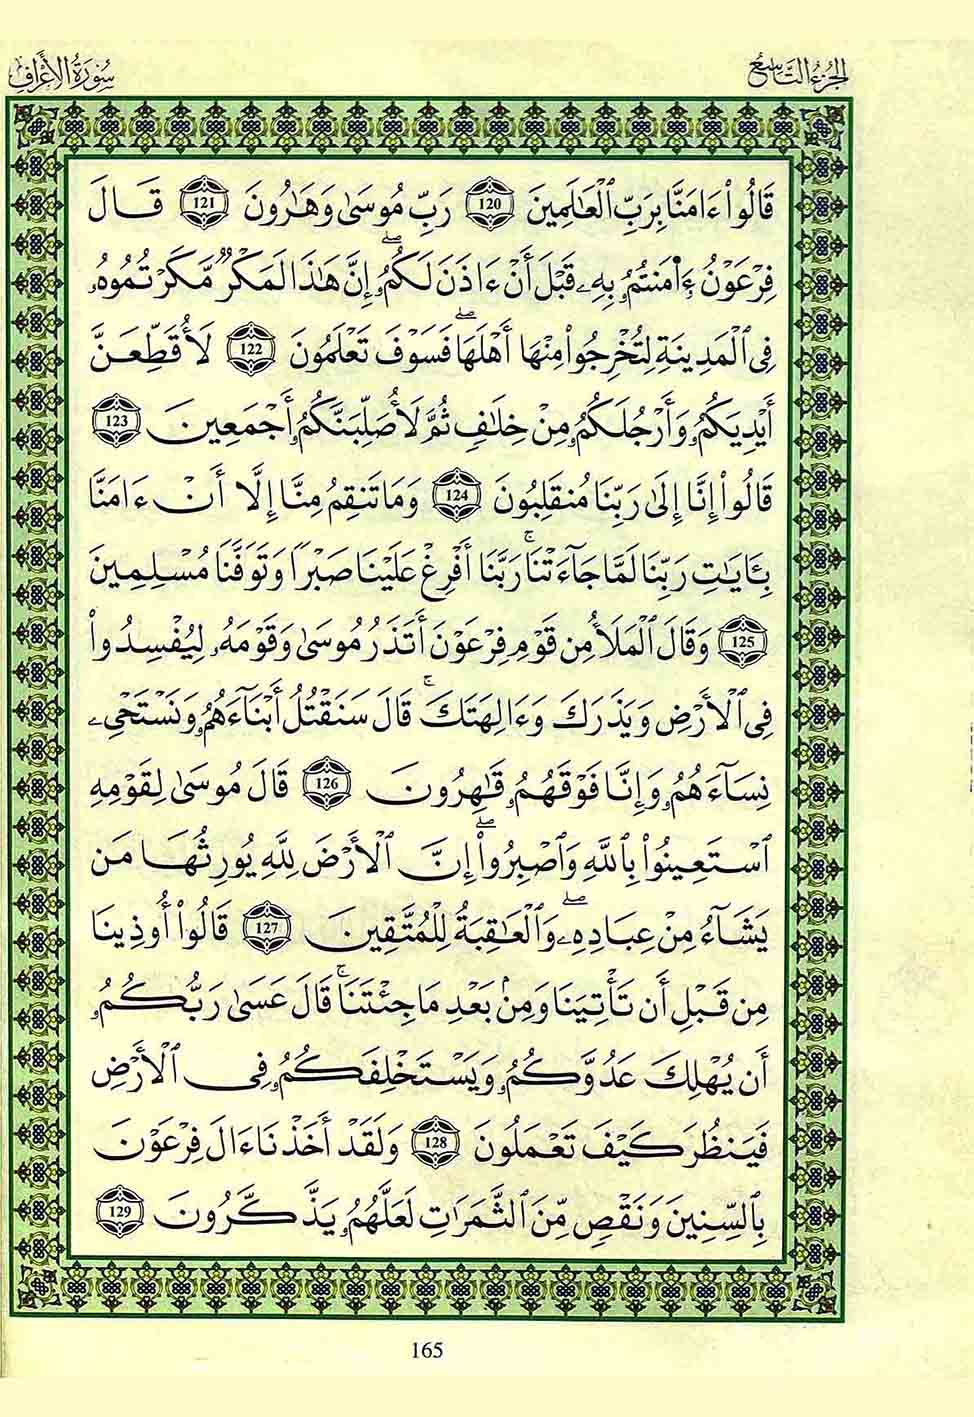 الجزء التاسع
سورة الأعراف
قَالُوا۟ ءَامَنَّا بِرَبِّ ٱلْعَٰلَمِينَ 120 رَبِّ مُوسَىٰ وَهَٰرُونَ 121 قَالَ
فِرْعَوْنُ ءَا۬مَنتُمُۥ بِهِۦ قَبْلَ أَنْ ءَاذَنَ لَكُمُۥٓۖ إِنَّ هَٰذَا لَمَكْرٌ مَّكَرْتُمُوهُۥ
فِى ٱلْمَدِينَةِ لِتُخْرِجُوا۟ مِنْهَا أَهْلَهَاۖ فَسَوْفَ تَعْلَمُونَ 122 لَأُقَطِّعَنَّ
أَيْدِيَكُمُۥ وَأَرْجُلَكُمُۥ مِنْ خِلَٰفٍ ثُمَّ لَأُصَلِّبَنَّكُمُۥ أَجْمَعِينَ 123
قَالُوا۟ إِنَّا إِلَىٰ رَبِّنَا مُنقَلِبُونَ 124 وَمَا تَنقِمُ مِنَّا إِلَّا أَنْ ءَامَنَّا
بِـَٔايَٰتِ رَبِّنَا لَمَّا جَآءَتْنَاۚ رَبَّنَا أَفْرِغْ عَلَيْنَا صَبْرًا وَتَوَفَّنَا مُسْلِمِينَ
125 وَقَالَ ٱلْمَلَأُ مِن قَوْمِ فِرْعَوْنَ أَتَذَرُ مُوسَىٰ وَقَوْمَهُۥ لِيُفْسِدُوا۟
فِى ٱلْأَرْضِ وَيَذَرَكَ وَءَالِهَتَكَۚ قَالَ سَنَقْتُلُ أَبْنَآءَهُمُۥ وَنَسْتَحْىِۦ
نِسَآءَهُمُۥ وَإِنَّا فَوْقَهُمُۥ قَٰهِرُونَ 126 قَالَ مُوسَىٰ لِقَوْمِهِ
ٱسْتَعِينُوا۟ بِٱللَّهِ وَٱصْبِرُوٓا۟ۖ إِنَّ ٱلْأَرْضَ لِلَّهِ يُورِثُهَا مَن
يَشَآءُ مِنْ عِبَادِهِۦۖ وَٱلْعَٰقِبَةُ لِلْمُتَّقِينَ 127 قَالُوا۟ أُوذِينَا
مِن قَبْلِ أَن تَأْتِيَنَا وَمِنۢ بَعْدِ مَا جِئْتَنَاۚ قَالَ عَسَىٰ رَبُّكُمُۥ
أَن يُهْلِكَ عَدُوَّكُمُۥ وَيَسْتَخْلِفَكُمُۥ فِى ٱلْأَرْضِ
فَيَنظُرَ كَيْفَ تَعْمَلُونَ 128 وَلَقَدْ أَخَذْنَا ءَالَ فِرْعَوْنَ
بِٱلسِّنِينَ وَنَقْصٍ مِّنَ ٱلثَّمَرَٰتِ لَعَلَّهُمُۥ يَذَّكَّرُونَ 129
165